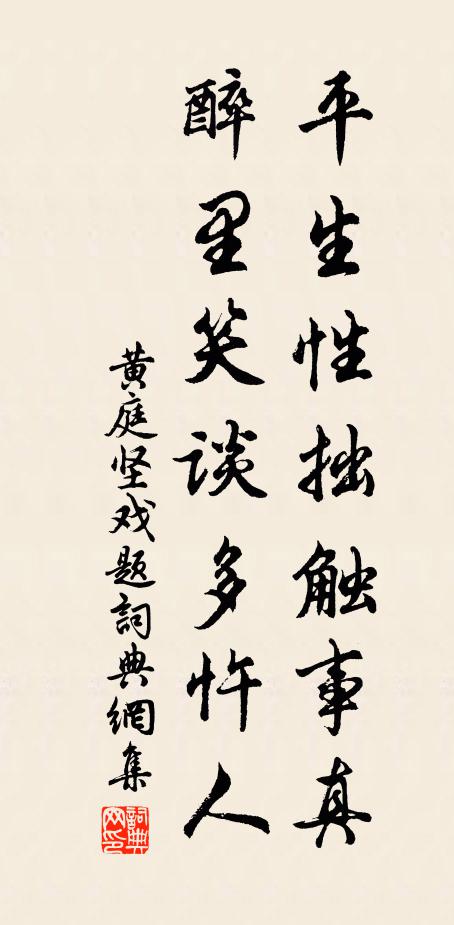 平生性拙触事真
醉里笑谈多忤人
黄庭坚戏题詞典網集
詞典网印